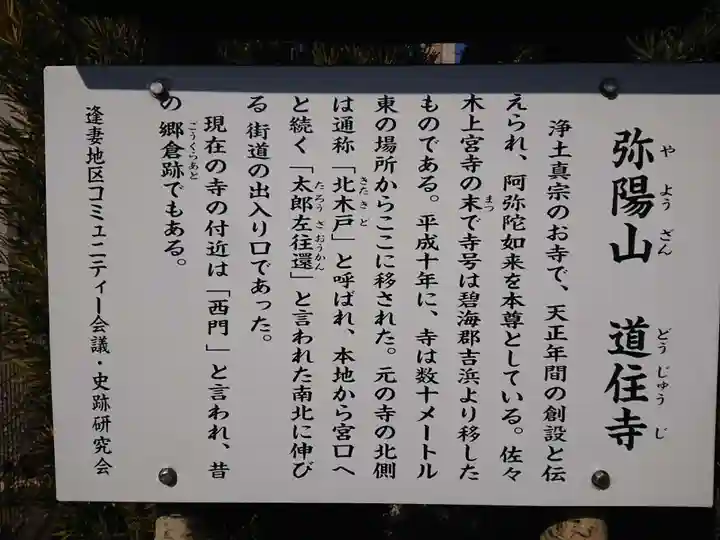 弥陽山　道住寺
や　よう　ざん　どう　じゅう　じ
浄土真宗のお寺で、天正年間の創設と伝
えられ、阿弥陀如来を本尊としている。佐々
木上宮寺の末で寺号は碧海郡吉浜より移した
まつ
ものである。平成十年に、寺は数十メートル
東の場所からここに移された。元の寺の北側
は通称「北木戸」と呼ばれ、本地から宮口へ
きたきど
と続く「太郎左往還」と言われた南北に伸び
たろうざおうかん
る街道の出入り口であった。
現在の寺の付近は「西門」と言われ、昔
の郷倉跡でもある。
ごうくらあと
逢妻地区コミュニティー会議・史跡研究会